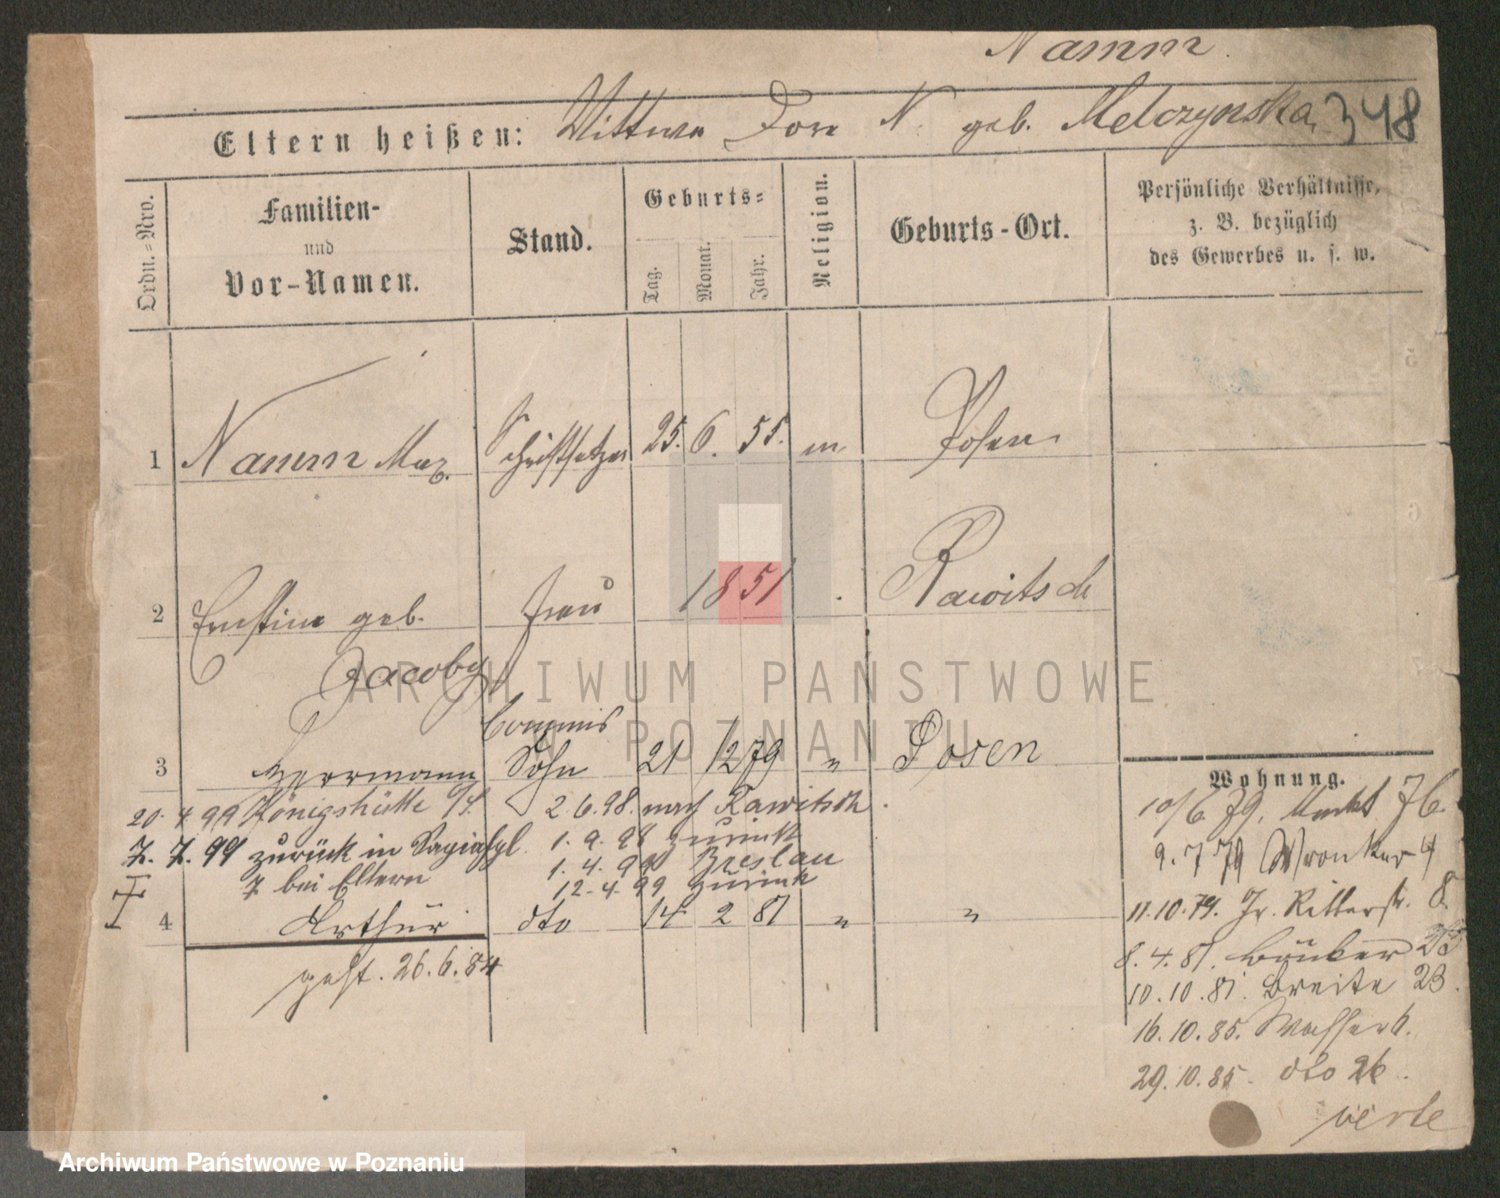 Namm.
Eltern heißen: Wittwe Dore N. geb. Melczynska. 348
Ordn.-Nro.
Familien-
und
Vor-Namen.
Stand.
Geburts-
Tag.
Monat.
Jahr.
Religion.
Geburts-Ort.
Persönliche Verhältnisse,
z. B. bezüglich
des Gewerbes u. s. w.
1 Namm Max. Schriftsetzer 25. 6. 55. m Posen
2 Ernstine geb. Frau 1851 Rawitsch
Jacoby
Commis
3 Herrmann Sohn 21 12 79 " Posen
20. 4. 99 Königshütte 2. 6. 98. nach Rawitsch.
7. 7. 99 zurück in 1. 9. 98 zurück
1. 4. 99 Breslau
7 bei Eltern 12-4-99 zurück
4 Arthur dto 14 2 81 " "
gest. 26. 6. 84
Wohnung.
10/6 79. Markt 76.
9. 7 79 Wronker 4
11. 10. 79. Gr. Ritterstr. 8.
8. 4. 81. 25
10. 10. 81. Breite 23.
16. 10. 85. Wasserst.
29. 10. 85. dto 26.
verte
ARCHIWUM PAŃSTWOWE
W POZNANIU
Archiwum Państwowe w Poznaniu